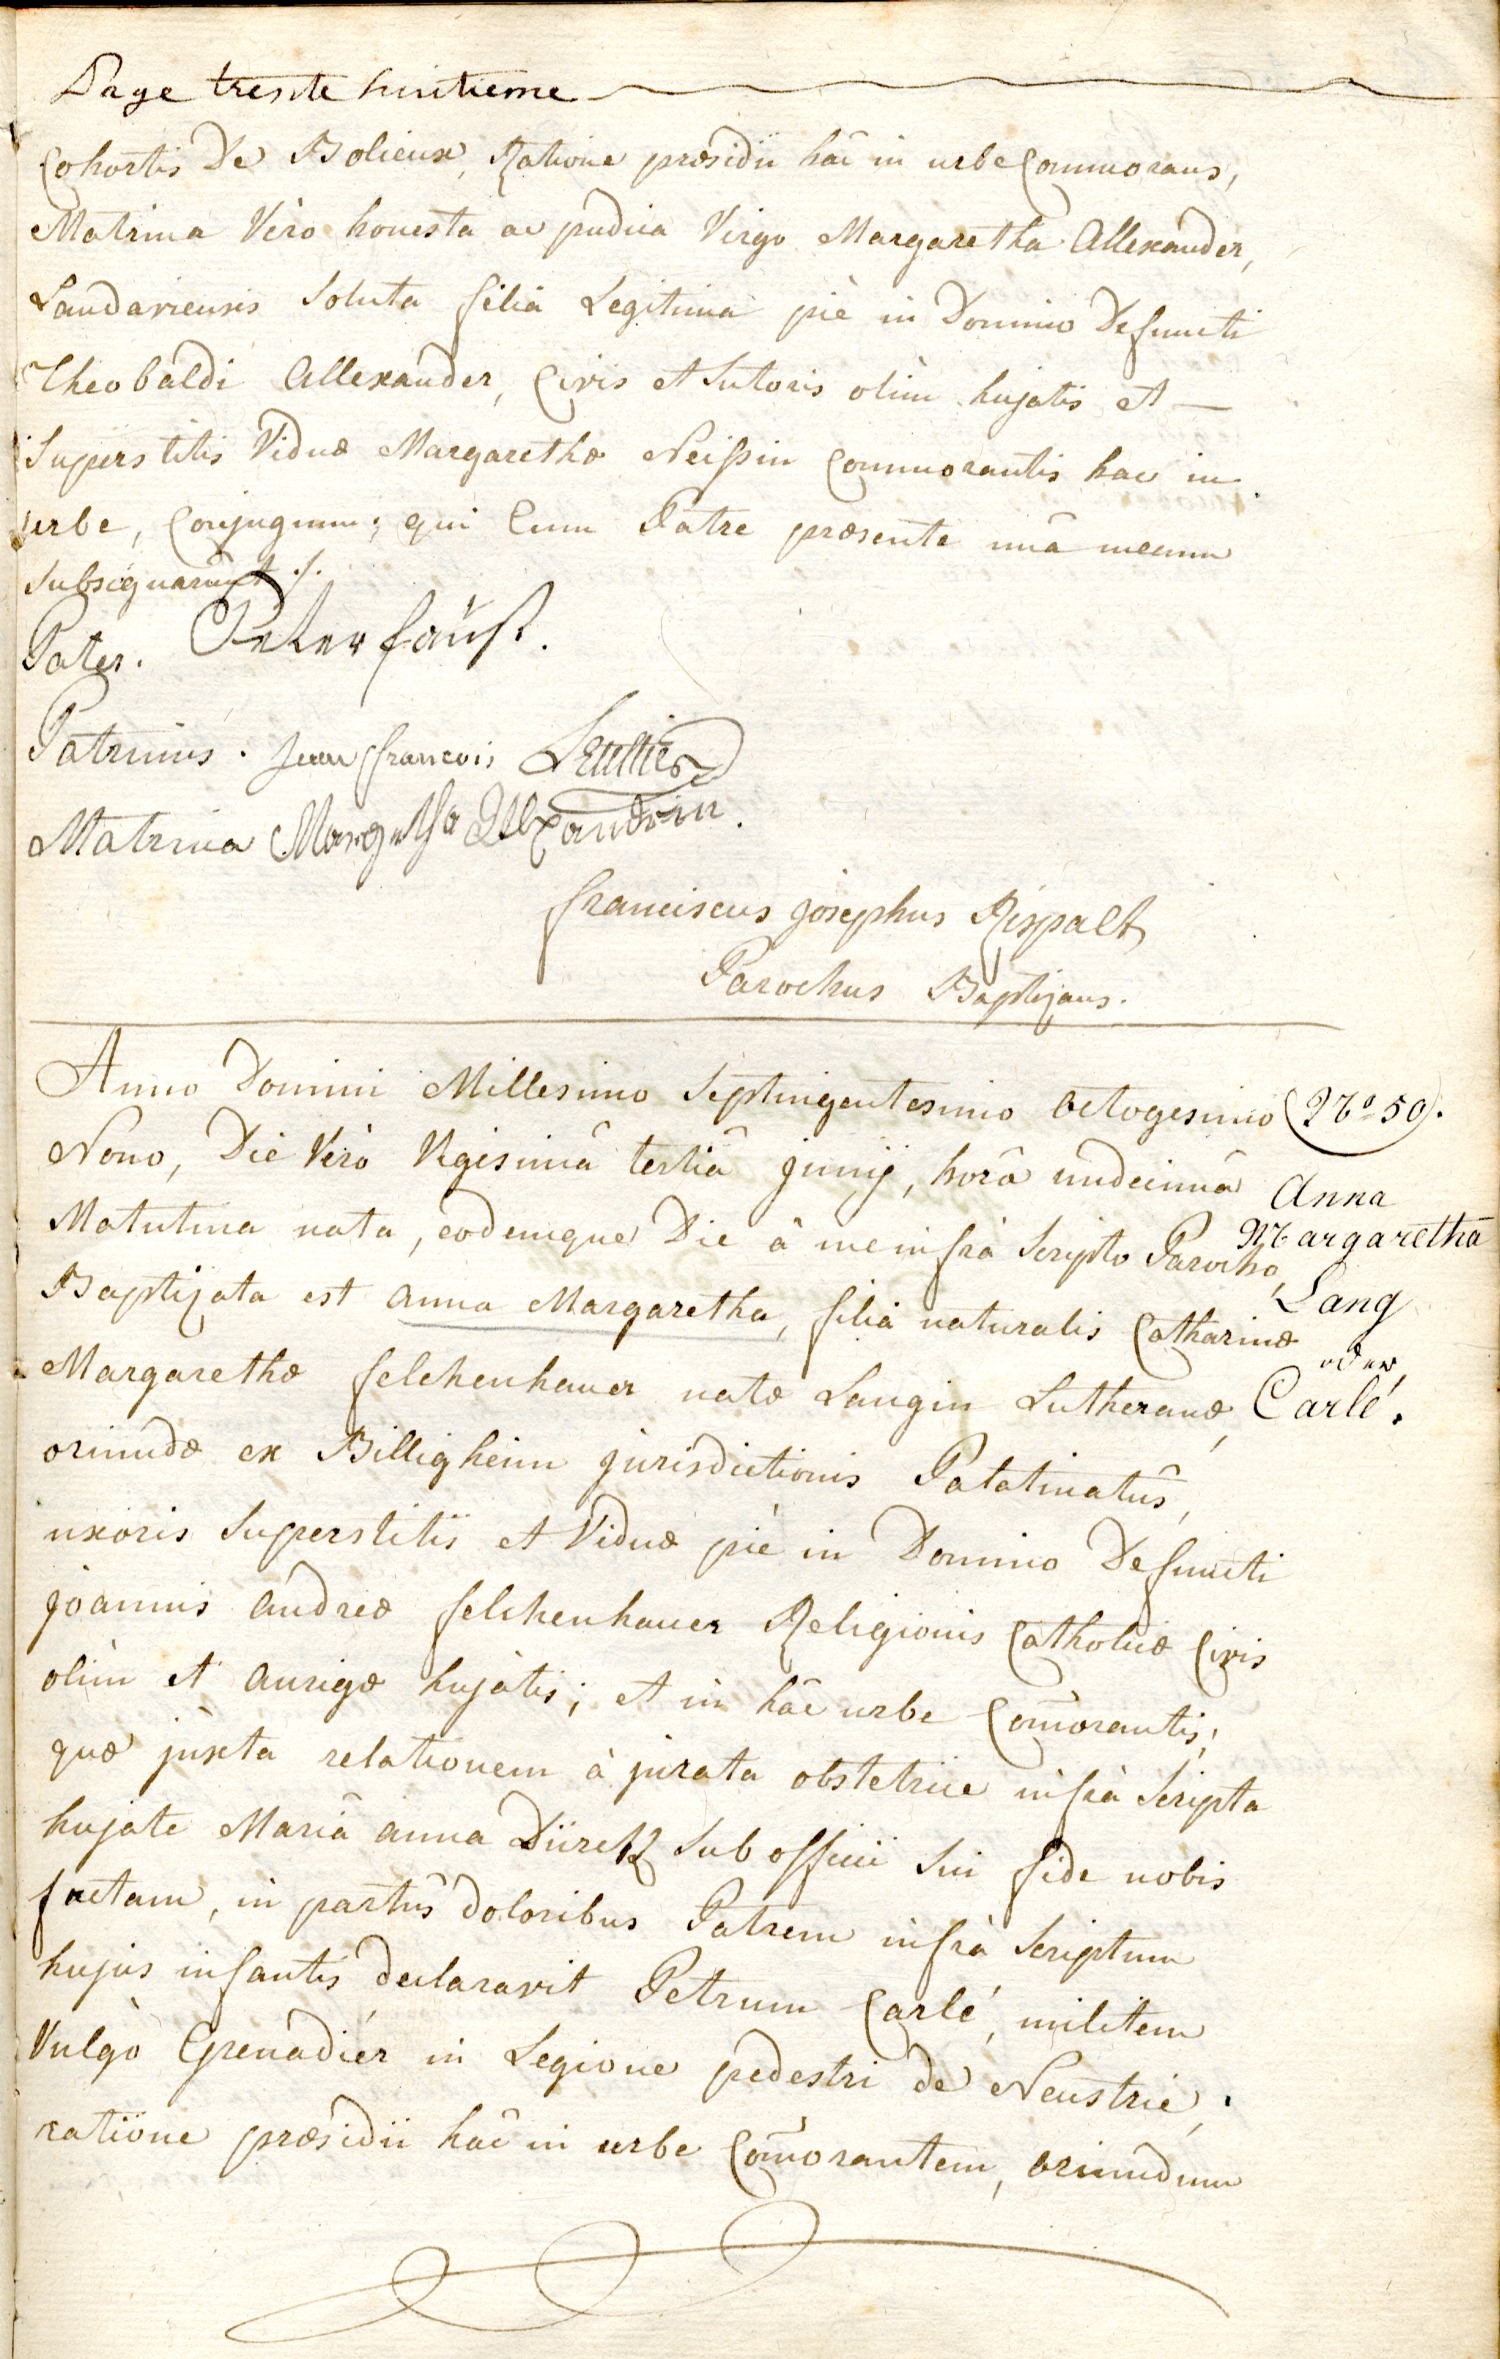 Page trente huitieme
Cohortis De Bolieux, Ratione præsidii hâc in urbe Commorans,
Matrina Vero honesta ac pudica Virgo Margaretha Allexander,
Landaviensis Soluta filia Legitima piè in Domino Defuncti
Theobaldi Allexander, Civis et Sutoris olim hujatis et —
Superstitis Viduæ Margarethæ Neissin Commorantis hac in
urbe, Conjugum; qui Cum Patre præsente unâ mecum
Subsignarunt ./.
Pater. Peter faüst.
Patrinus. Jean francois
Matrina Margretha Allexandrin.
franciscus josephus Rispalt
Parochus Baptizans.
Anno Domini Millesimo Septingentesimo octogesimo
Nono, Die Vero Vigesimâ tertiâ junij, horâ undecimâ
Matutina nata, eodemque Die à me infrà Scripto Parocho,
Baptizata est anna Margaretha, filia naturalis Catharinæ
Margarethæ felchenhauer natæ Langin Lutheranæ,
oriundæ ex Billigheim jurisdictionis Palatinatûs,
uxoris Superstitis et Viduæ piè in Domino Defuncti
joannis andreæ felchenhauer Religionis Catholicæ Civis
olim et aurigæ hujatis; et in hâc urbe Com̃orantis;
quæ juxta relationem à jurata obstetrice infrà Scripta
hujate Mariâ anna Dürck Sub officii sui fide nobis
factam, in partûs doloribus Patrem infrà Scriptum
hujus infantis declaravit Petrum Carlé, militem
Vulgò Grenadiér in Legione pedestri de Neustrié,
ratione præsidii hâc in urbe Com̃orantem, oriundum
No 50.
Anna
Margaretha
Lang
oder
Carlé.